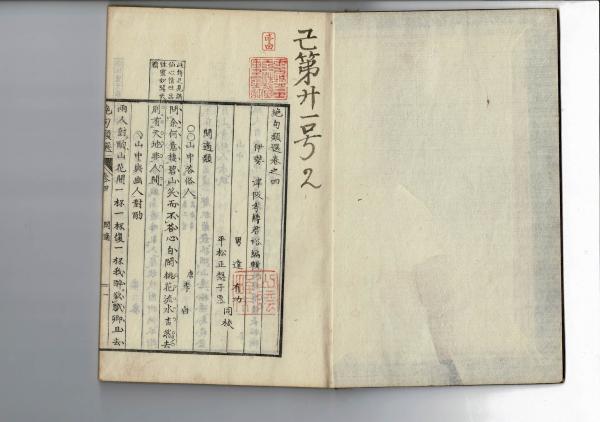 己第廿一号
2
絶句類選巻之四
伊勢 津阪孝綽君裕編輯
男 達 有功
平松正愨子愿 同校
閒適類
〇〇山中答俗人 唐李白
問余何意棲碧山笑而不荅心自閒桃花流水杳然去
別有天地非人間
〇山中與幽人對酌
兩人對酌山花開一杯一杯復一杯我醉欲眠卿且去
絶句類選 卷四 閒適 一